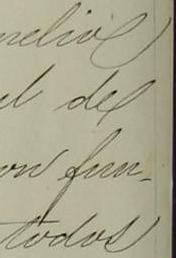 nelio
al del
on fun-
todos